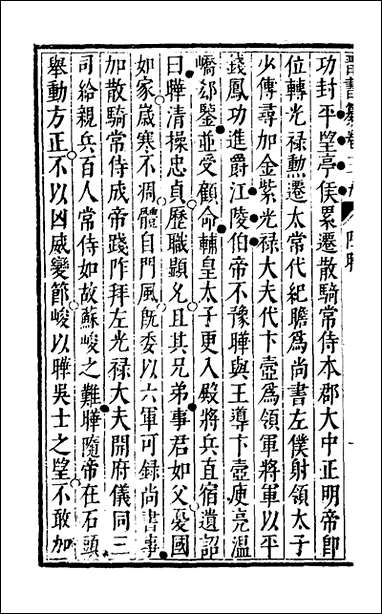 晉書纂卷三十九 陸曄
功封平望亭侯累遷散騎常侍本郡大中正明帝即
位轉光祿勳遷太常代紀瞻為尚書左僕射領太子
少傅尋加金紫光祿大夫代卞壼為領軍將軍以平
錢鳳功進爵江陵伯帝不豫曄與王導卞壼庾亮溫
嶠郄鑒並受顧命輔皇太子更入殿將兵直宿遺詔
曰曄清操忠貞歷職顯允且其兄弟事君如父憂國
如家歲寒不凋體自門風既委以六軍可錄尚書事
加散騎常侍成帝踐阼拜左光祿大夫開府儀同三
司給親兵百人常侍如故蘇峻之難曄隨帝在石頭
舉動方正不以凶威變節峻以曄吳士之望不敢加